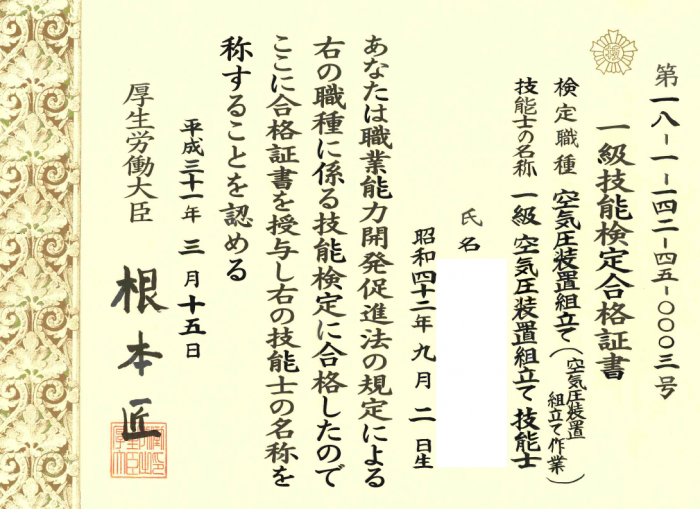 第一八-一-一四二-四五-〇〇〇三号
一級技能検定合格証書
検定職種 空気圧装置組立て(空気圧装置組立て作業)
技能士の名称 一級 空気圧装置組立て 技能士
氏名
昭和四十二年 九月 二日生
あなたは職業能力開発促進法の規定による
右の職種に係る技能検定に合格したので
ここに合格証書を授与し右の技能士の名称を
称することを認める
平成三十一年 三月 十五日
厚生労働大臣 根本匠